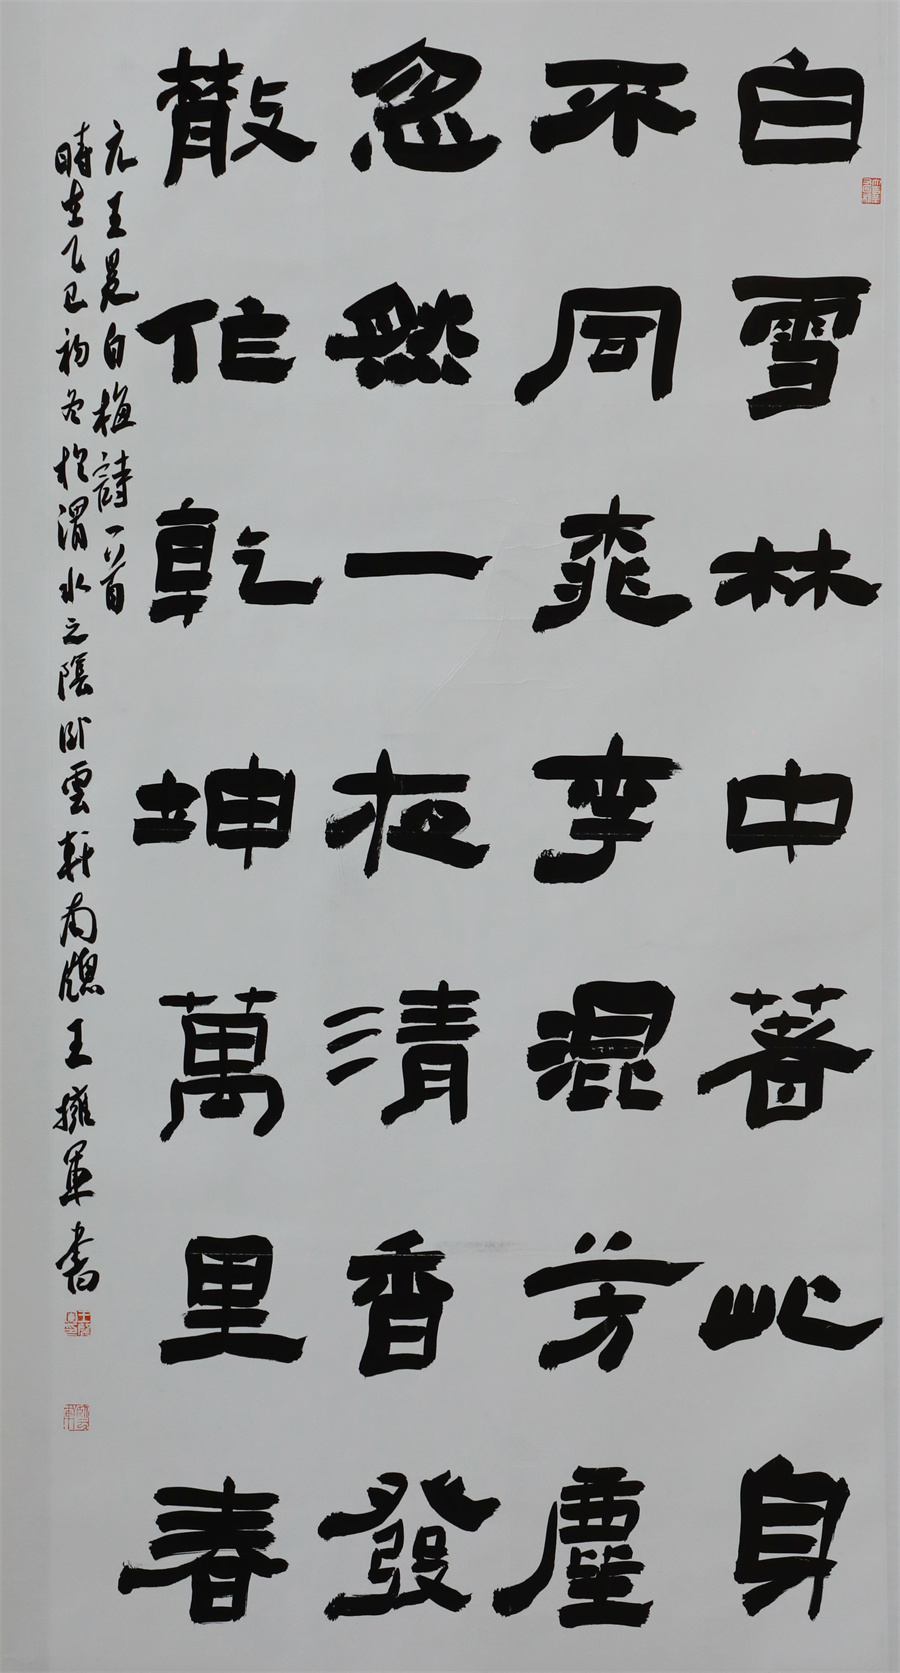 白雪林中著此身
不同桃李混芳塵
忽然一夜清香發
散作乾坤萬里春
元王冕白梅詩一首
時在乙巳初冬於渭水之陰臥雲軒南窗王擁軍書